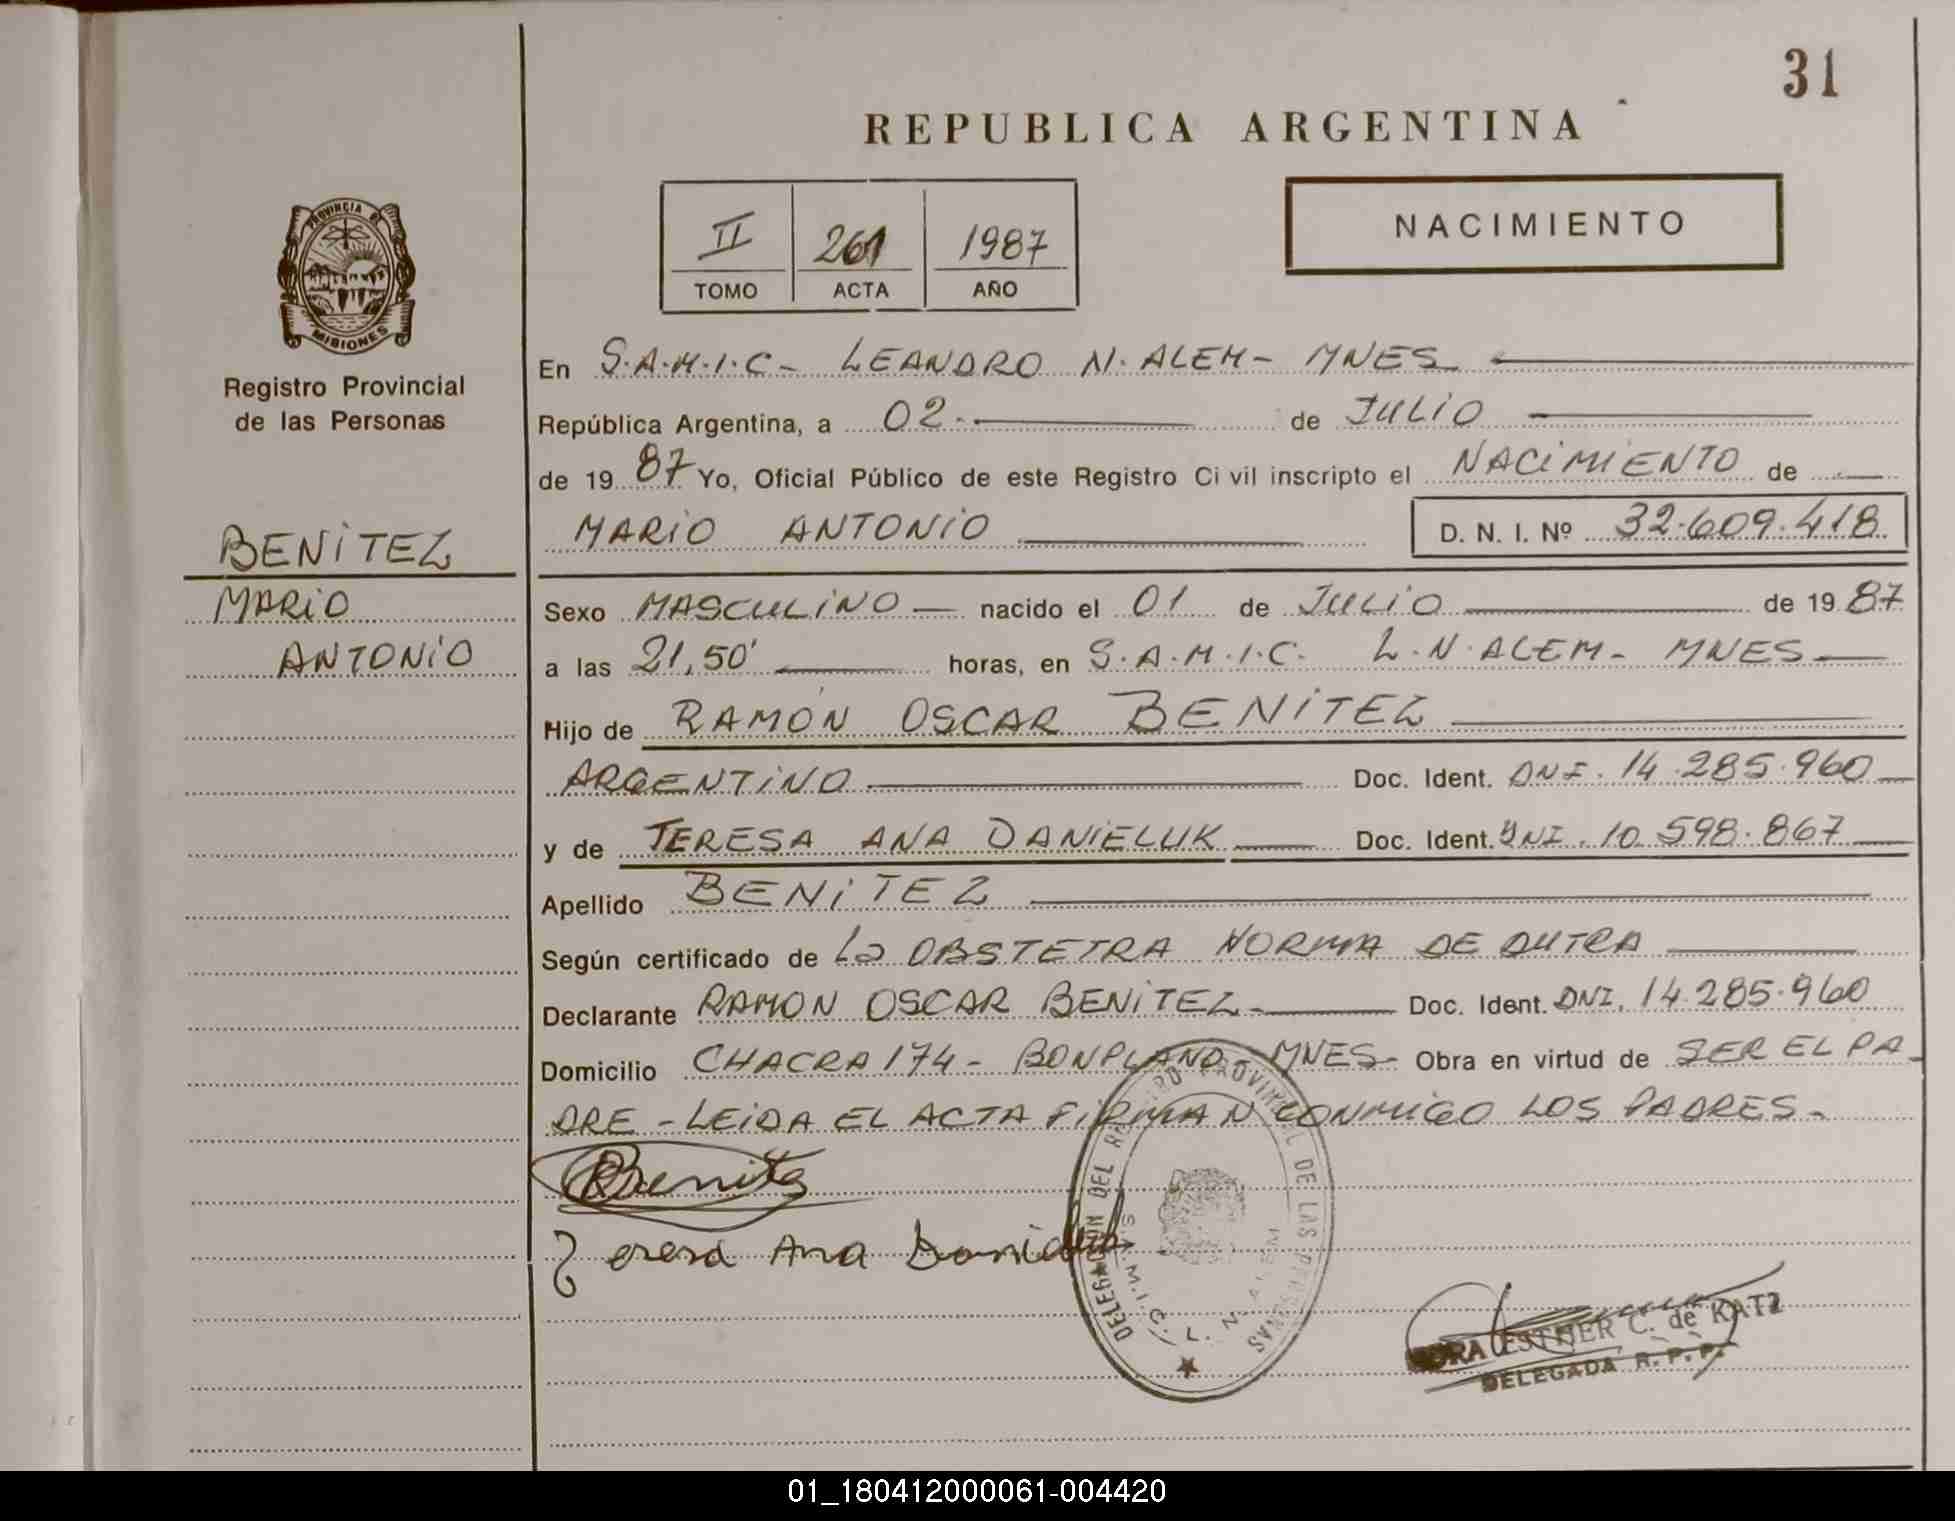 31
REPUBLICA ARGENTINA
II 261 1987
TOMO ACTA AÑO
NACIMIENTO
PROVINCIA DE
MISIONES
Registro Provincial
de las Personas
BENITEZ
MARIO
ANTONIO
En S.A.M.I.C - LEANDRO N. ALEM - MNES
República Argentina, a 02 de JULIO
de 19 87 Yo, Oficial Público de este Registro Civil inscripto el NACIMIENTO de
MARIO ANTONIO D. N. I. Nº 32.609.418
Sexo MASCULINO nacido el 01 de JULIO de 19 87
a las 21,50' horas, en S.A.M.I.C. L.N.ALEM - MNES
Hijo de RAMON OSCAR BENITEZ
ARGENTINO Doc. Ident. DNI. 14.285.960
y de TERESA ANA DANIELUK Doc. Ident. DNI. 10.598.867
Apellido BENITEZ
Según certificado de La OBSTETRA NORMA DE DUTRA
Declarante RAMON OSCAR BENITEZ Doc. Ident. DNI. 14.285.960
Domicilio CHACRA 174 - BONPLAND MNES - Obra en virtud de SER EL PA
DRE - LEIDA EL ACTA FIRMAN CONMIGO LOS PADRES -
Benitez
Teresa Ana Danieluk
DELEGACION DEL REGISTRO PROVINCIAL DE LAS PERSONAS
S.A.M.I.C. L. N. ALEM
ESTHER C. de KATZ
DELEGADA R. P. P.
01_180412000061-004420